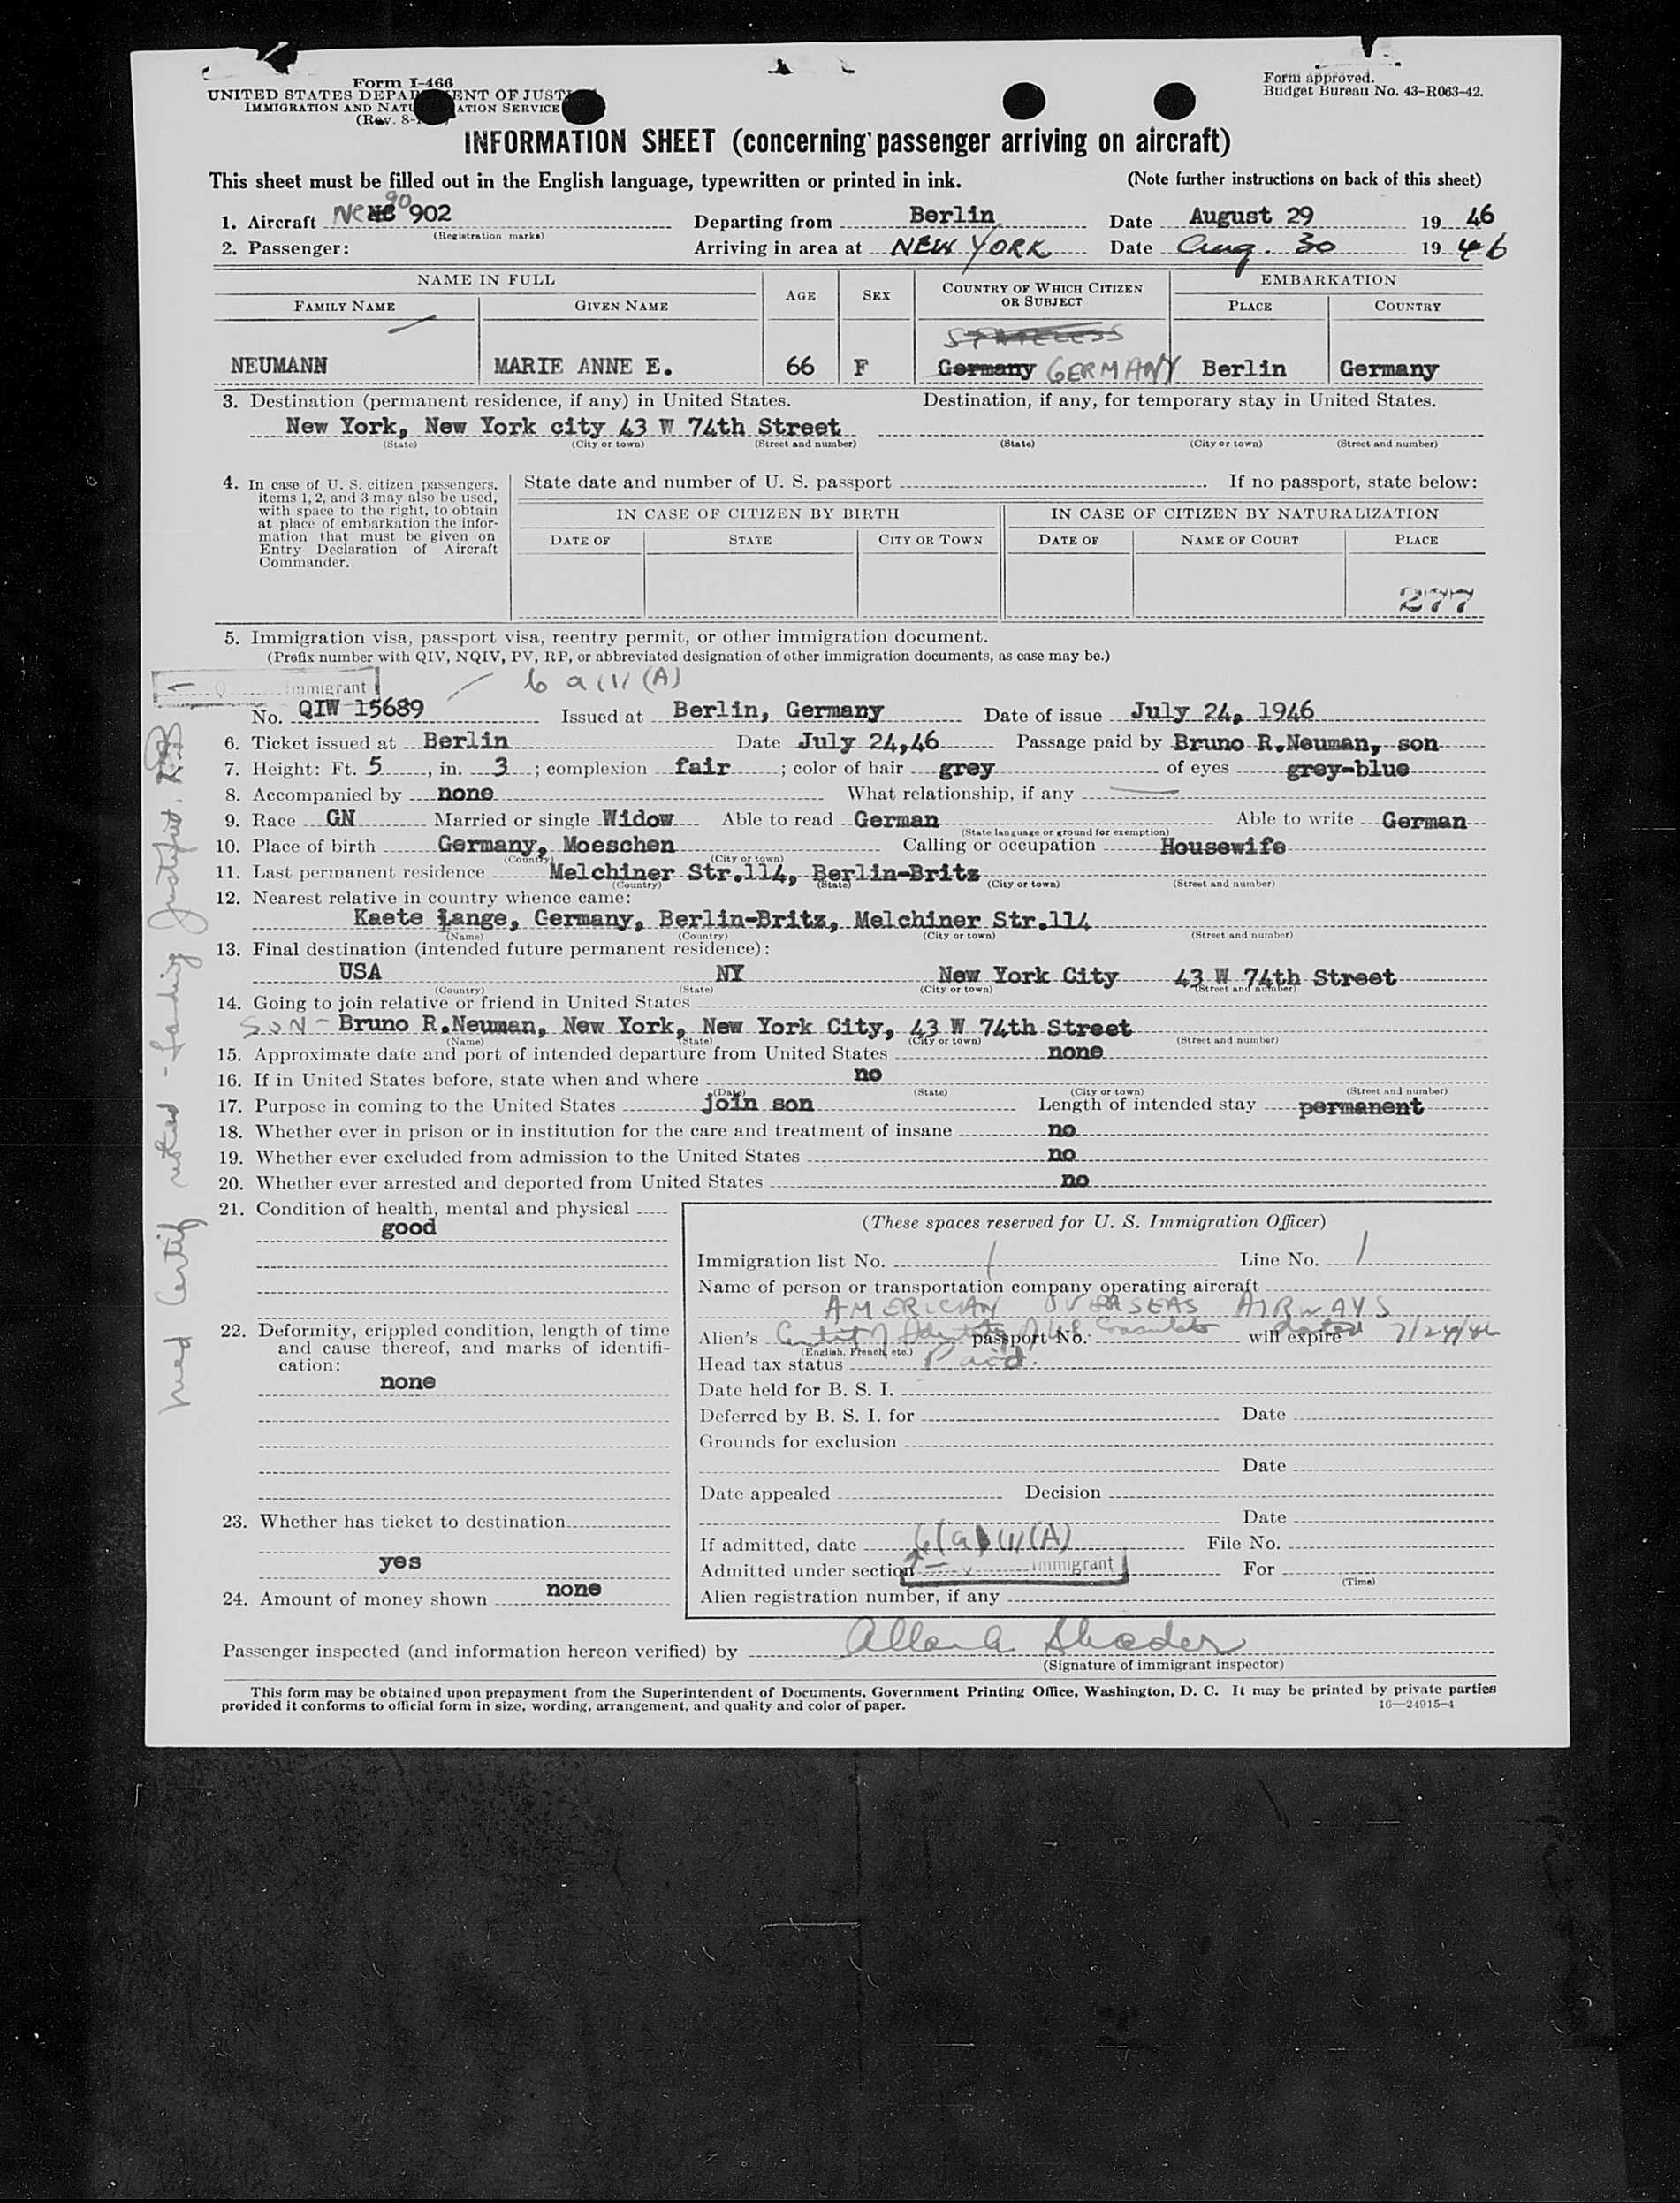 Form I-466
UNITED STATES DEPARTMENT OF JUSTICE
IMMIGRATION AND NATURALIZATION SERVICE
(Rev. 8-
Form approved.
Budget Bureau No. 43-R063-42.
INFORMATION SHEET (concerning passenger arriving on aircraft)
This sheet must be filled out in the English language, typewritten or printed in ink. (Note further instructions on back of this sheet)
90
1. Aircraft NC NC 902 Departing from Berlin Date August 29 1946
(Registration marks)
2. Passenger: Arriving in area at NEW YORK Date Aug. 30 1946
NAME IN FULL AGE SEX COUNTRY OF WHICH CITIZEN OR SUBJECT EMBARKATION
FAMILY NAME GIVEN NAME PLACE COUNTRY
STATELESS
NEUMANN MARIE ANNE E. 66 F Germany GERMANY Berlin Germany
3. Destination (permanent residence, if any) in United States. Destination, if any, for temporary stay in United States.
New York, New York city 43 W 74th Street
(State) (City or town) (Street and number) (State) (City or town) (Street and number)
4. In case of U. S. citizen passengers, items 1, 2, and 3 may also be used, with space to the right, to obtain at place of embarkation the information that must be given on Entry Declaration of Aircraft Commander.
State date and number of U. S. passport If no passport, state below:
IN CASE OF CITIZEN BY BIRTH IN CASE OF CITIZEN BY NATURALIZATION
DATE OF STATE CITY OR TOWN DATE OF NAME OF COURT PLACE
277
5. Immigration visa, passport visa, reentry permit, or other immigration document.
(Prefix number with QIV, NQIV, PV, RP, or abbreviated designation of other immigration documents, as case may be.)
Q Immigrant 6 a (1) (A)
No. QIW 15689 Issued at Berlin, Germany Date of issue July 24, 1946
6. Ticket issued at Berlin Date July 24,46 Passage paid by Bruno R.Neuman, son
7. Height: Ft. 5, in. 3; complexion fair; color of hair grey of eyes grey-blue
8. Accompanied by none What relationship, if any —
9. Race GN Married or single Widow Able to read German Able to write German
(State language or ground for exemption)
10. Place of birth Germany, Moeschen Calling or occupation Housewife
(Country) (City or town)
11. Last permanent residence Melchiner Str.114, Berlin-Britz
(Country) (State) (City or town) (Street and number)
12. Nearest relative in country whence came:
Kaete Lange, Germany, Berlin-Britz, Melchiner Str.114
(Name) (Country) (City or town) (Street and number)
13. Final destination (intended future permanent residence):
USA NY New York City 43 W 74th Street
(Country) (State) (City or town) (Street and number)
14. Going to join relative or friend in United States
SON - Bruno R.Neuman, New York, New York City, 43 W 74th Street
(Name) (State) (City or town) (Street and number)
15. Approximate date and port of intended departure from United States none
16. If in United States before, state when and where no
(Date) (State) (City or town) (Street and number)
17. Purpose in coming to the United States join son Length of intended stay permanent
18. Whether ever in prison or in institution for the care and treatment of insane no
19. Whether ever excluded from admission to the United States no
20. Whether ever arrested and deported from United States no
21. Condition of health, mental and physical
good
22. Deformity, crippled condition, length of time and cause thereof, and marks of identification:
none
23. Whether has ticket to destination
yes
24. Amount of money shown none
(These spaces reserved for U. S. Immigration Officer)
Immigration list No. 1 Line No. 1
Name of person or transportation company operating aircraft
AMERICAN OVERSEAS AIRWAYS
Alien's passport No. will expire dated 7/24/46
(English, French, etc.)
Head tax status Paid.
Date held for B. S. I.
Deferred by B. S. I. for Date
Grounds for exclusion
Date
Date appealed Decision
Date
If admitted, date 6(a)(1)(A) File No.
Admitted under section Immigrant For
(Time)
Alien registration number, if any
Passenger inspected (and information hereon verified) by Allan A. Shader
(Signature of immigrant inspector)
This form may be obtained upon prepayment from the Superintendent of Documents, Government Printing Office, Washington, D. C. It may be printed by private parties
provided it conforms to official form in size, wording, arrangement, and quality and color of paper. 16—24915-4
Med Certif noted - Landing Justified.